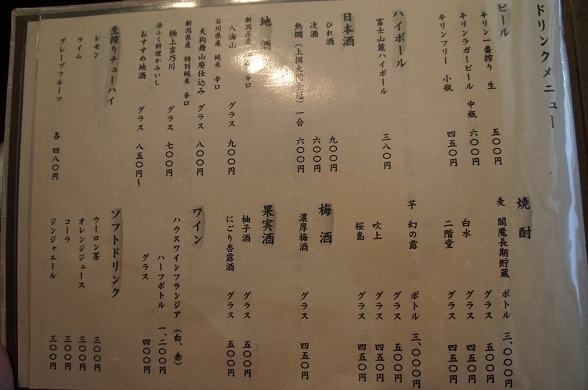 ドリンクメニュー
ビール
キリン一番搾り 生 五〇〇円
キリンラガービール 中瓶 六〇〇円
キリンフリー 小瓶 四五〇円
ハイボール
富士山麓ハイボール 三八〇円
日本酒
ひれ酒 九〇〇円
次酒 六〇〇円
熱燗 一合 六〇〇円
地酒
新潟県産
八海山 グラス 九〇〇円
石川県産 純米 辛口
天狗舞山廃仕込み グラス 八〇〇円
新潟県産 特別純米 辛口
極上吉乃川 グラス 七〇〇円
おすすめ地酒 グラス 八五〇円〜
生搾りチューハイ
レモン
ライム
グレープフルーツ 各 四八〇円
焼酎
麦 閻魔長期貯蔵 ボトル 三、〇〇〇円
グラス 四五〇円
白水 グラス 四五〇円
二階堂 グラス 四五〇円
芋 幻の露 ボトル 三、〇〇〇円
グラス 四五〇円
吹上 グラス 四五〇円
桜島 グラス 四五〇円
梅酒
濃厚梅酒 グラス 四五〇円
果実酒
柚子酒 グラス 五〇〇円
にごり杏露酒 グラス 五〇〇円
ワイン
ハウスワインフランジア(白、赤)
ハーフボトル 一、二〇〇円
グラス 四〇〇円
ソフトドリンク
ウーロン茶 三〇〇円
オレンジジュース 三〇〇円
コーラ 三〇〇円
ジンジャエール 三〇〇円